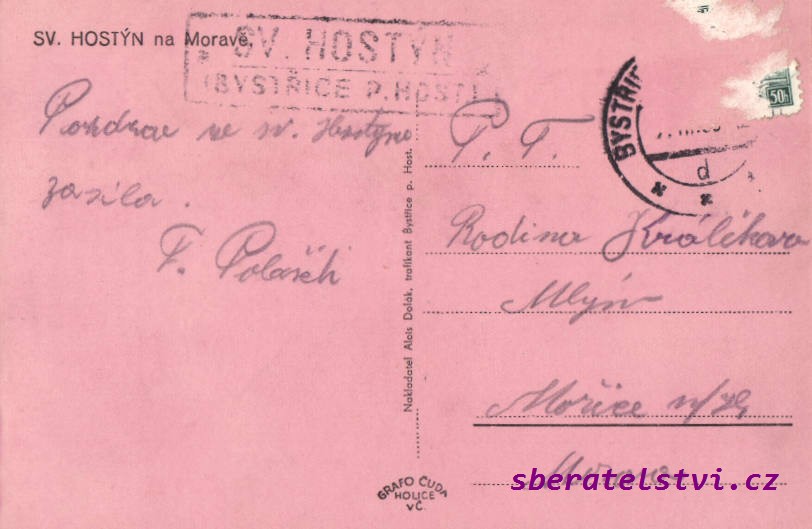 SV. HOSTÝN na Moravě.
SV. HOSTÝN
(BYSTŘICE P. HOST.)
Pozdrav ze sv. Hostýna
zasílá.
F. Polášek
Nakladatel Alois Dolák, trafikant Bystřice p. Host.
50h
BYSTŘIC
d
P. T.
Rodina Králíkova
Mlýn
Mořice
Morava
GRAFO ČUDA
HOLICE
VČ.
sberatelstvi.cz